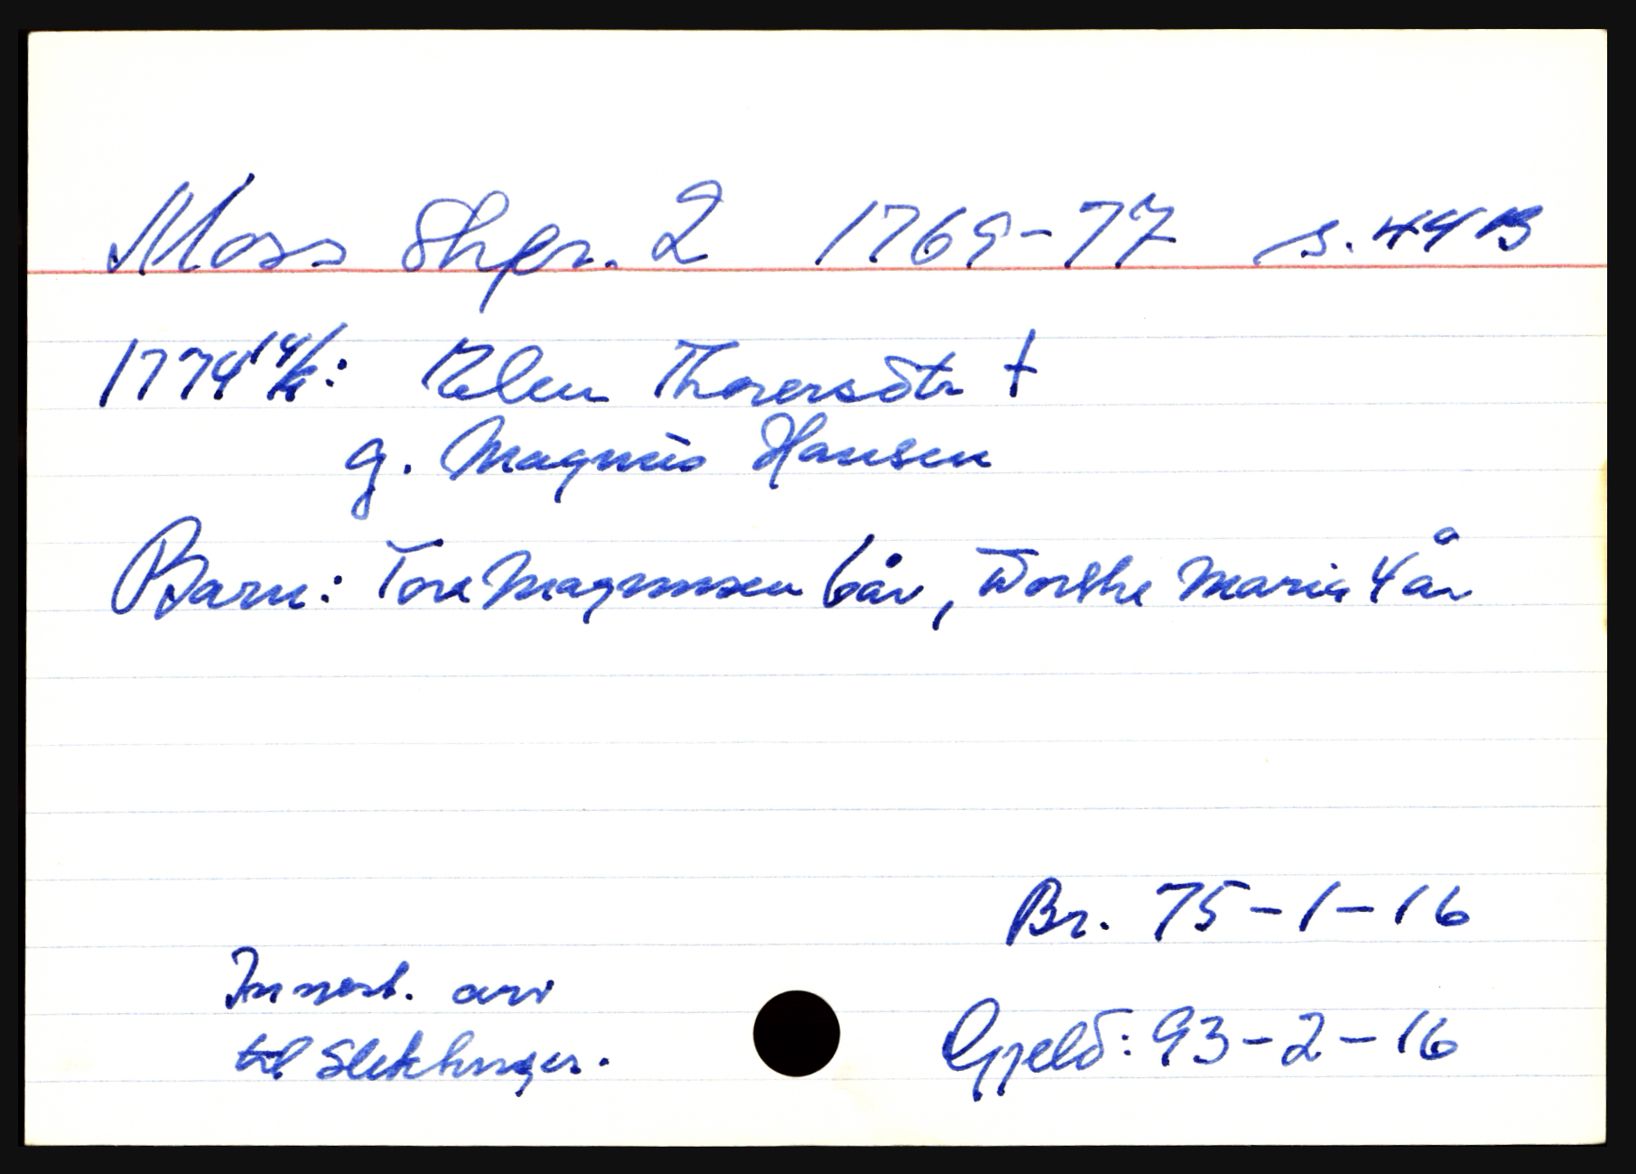 Moss Skpr. 2 1769-77 s. 44 B
1774 14/: Elen Thorersdtr †
g. Magnus Hansen
Barn: Tore Magnussen 6 år, Dorthe Maria 4 år
Br. 75-1-16
Innest. arv
til Slektninger.
Gjeld: 93-2-16